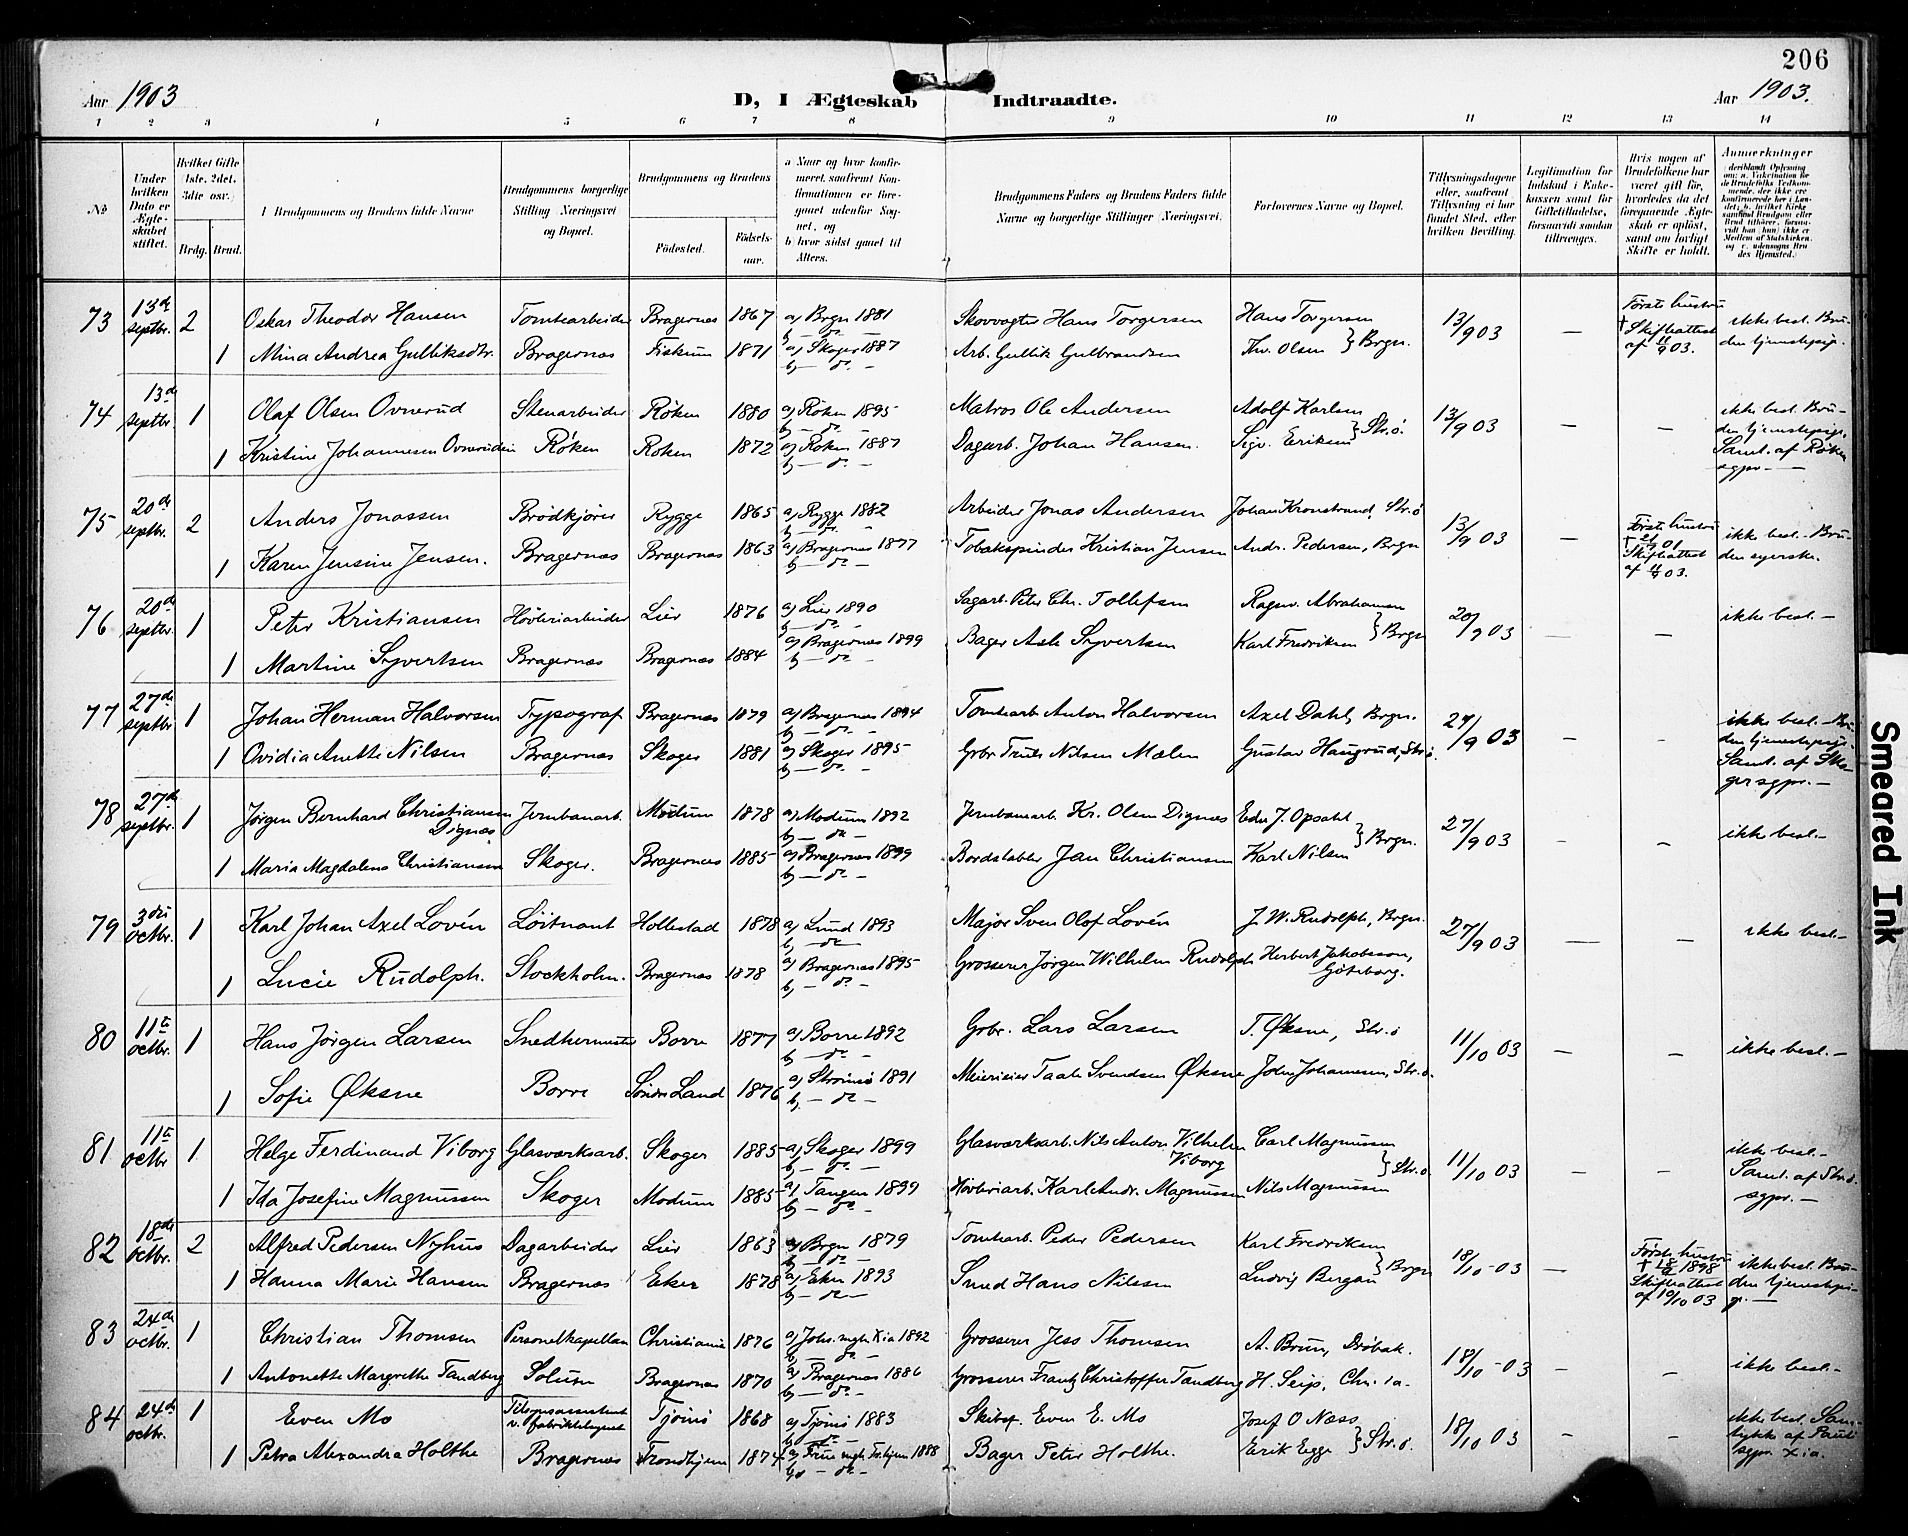 206
Aar 1903
D, I Ægteskab Indtraadte.
Aar 1903.
1 2 3 4 5 6 7 8 9 10 11 12 13 14
No
Under hvilken Dato er Ægteskabet stiftet.
Hvilket Gifte (1ste, 2det, 3die osv.)
Brdg. Brud.
Brudgommens og Brudens fulde Navne
Brudgommens borgerlige Stilling (Næringsvei) og Bopæl.
Brudgommens og Brudens
Fødested. Fødsels-aar.
a Naar og hvor konfirmeret, saafremt Konfirmationen er foregaaet udenfor Sognet, og
b) hvor sidst gaaet til Alters.
Brudgommens Faders og Brudens Faders fulde Navne og borgerlige Stillinger (Næringsvei).
Forlovernes Navne og Bopæl.
Tillysningsdagene eller, saafremt Tillysning ei har fundet Sted, efter hvilken Bevilling.
Legitimation for Indskud i Enkekassen samt for Giftetilladelse, forsaavidt saadan tiltrænges.
Hvis nogen af Brudefolkene har været gift før, hvorledes da det foregaaende Ægteskab er opløst, samt om lovligt Skifte er holdt.
Anmærkninger
73 13de septbr. 2 Oskar Theodor Hansen Tomtearbeider Bragernes 1867 a) Brgn 1881 Skovvogter Hans Torgersen Hans Torgersen 13/9 03 — Første hustru † Skifteattest af 11/9 03. ikke besl. Bru-
1 Mina Andrea Gulliksdtr. Bragernes Fiskum 1871 a) Skoger 1887 b) — do. — Arb. Gullik Gulbrandsen Thv. Olsen } Brgn. den tjenestepige.
74 13de septbr. 1 Olaf Olsen Ovnerud Stenarbeider Røken 1880 a) Røken 1895 b) — do. — Matros Ole Andersen Adolf Karlsen 13/9 03 — — ikke besl. Bru-
1 Kristine Johannesen Ovnerudeie Røken Røken 1872 a) Røken 1887 b) — do. — Dagarb. Johan Hansen. Sigv. Eriksen } Str.ø. den tjenestepige. Samt. af Røken sgpr. —
75 20de septbr. 2 Anders Jonassen Brødkjører Rygge 1865 a) Rygge 1882 b) — do. — Arbeider Jonas Andersen Johan Kronstrand, Str.ø 13/9 03 — Første hustru † Skifteattest af 11/9 03. ikke besl. Bru-
1 Karen Jensine Jensen. Bragernes Bragernes 1863 a) Bragernes 1877 b) — do. — Tobakspinder Kristian Jensen Andr. Pedersen, Brgn den syerske.
76 20de septbr. 1 Peter Kristiansen Høvleriarbeider Lier 1876 a) Lier 1890 b) — do. — Sagarb. Peter Chr. Tollefsen Ragnv. Abrahamsen 20/9 03 — — ikke besl. —
1 Martine Syvertsen Bragernæs Bragernes 1884 a) Bragernes 1899 b) — do. — Bager Axle Syvertsen Karl Fredriksen } Brgn
77 27de septbr. 1 Johan Herman Halvorsen Typograf Bragernes 1879 a) Bragernes 1894 b) — do. — Tomtearb. Anton Halvorsen Axel Dahl, Brgn. 27/9 03 — — ikke besl. Bru-
1 Ovidia Anette Nilsen Bragernes Skoger 1881 a) Skoger 1895 b) — do. — Grbr. Truls Nilsen Malen Gustav Haugrud, Str.ø. den tjenestepige. Samt. af Skoger sgpr. —
78 27de septbr. 1 Jørgen Bernhard Christiansen Dignæs Jernbanarb. Modum 1878 a) Modum 1892 b) — do. — Jernbanearb. Kr. Olsen Dignæs Edv. J. Opsahl 27/9 03 — — ikke besl. —
1 Maria Magdalena Christiansen Skoger. Bragernes 1885 a) Bragernes 1899 b) — do. — Bordstabler Jan Christiansen Karl Nilsen } Brgn.
79 3die octbr. 1 Karl Johan Axel Lovén Løitnant Hollestad 1878 a) Lund 1893 b) — do — Major Sven Olof Lovén J. W. Rudolph, Brgn. 27/9 03 — — ikke besl. —
1 Lucie Rudolph. Stockholm. Bragernes 1878 a) Bragernes 1895 b) — do. — Grosserer Jørgen Wilhelm Rudolph Herbert Jakobsson, Göteborg.
80 11te octbr. 1 Hans Jørgen Larsen Snedkermester Borre 1877 a) Borre 1892 b) — do. — Grbr. Lars Larsen T. Øksne, Str.ø 11/10 03 — — ikke besl. —
1 Sofie Øksne Borre Søndre Land 1876 a) Strømsø 1891 b) — do — Meierieier Taale Svendsen Øksne John Johannesen, Str.ø.
81 11te octbr 1. Helge Ferdinand Viborg Glasværksarb. Skoger 1885 a) Skoger 1899 b) — do. — Glasværksarb. Nils Anton Vilhelm Viborg Carl Magnussen 11/10 03 — — ikke besl. —
1 Ida Josefine Magnussen Skoger Modum 1885 a) Tangen 1899 b) — do. — Høvleriarb. Karl Andr. Magnussen Nils Magnussen } Str.ø. Samt. af Str.ø. sgpr. —
82 18de octbr. 2 Alfred Pedersen Nyhus Dagarbeider Lier 1863 a) Brgn 1879 b) — do. — Tomtearb. Peder Pedersen Karl Fredriksen 18/10 03 — Første hustru † 1898 Skifteattest af 10/10 03 ikke besl. Bru-
1 Hanna Marie Hansen Bragernes Eker 1878 a) Eker 1893 b) — do — Smed Hans Nilssen Ludvig Bergan } Brgn den tjenestepige. —
83 24de octbr. 1 Christian Thomsen Personelkapellan Christiania 1876 a) Johs. mgh. Xia 1892 b) — do. — Grosserer Jess Thomsen A. Brun, Drøbak. 18/10 03 — — ikke besl. —
1 Antonette Margrethe Tandberg Solum Bragernes 1870 a) Bragernes 1886 b) — do. — Grosserer Frantz Christoffer Tandberg H. Seip, Chr.ia.
84 24de octbr. 1 Even Mo Tilsynsassistent v. fabriktilsynet Tjømø 1868 a) Tjømø 1883 b) — do — Skibsf. Even E. Mo Josef O Næss 18/10 03 — — ikke besl. Sam-
1 Petra Alexandra Holthe Bragernes Trondhjem 1874 a) Frue mgh Tr.hjem 1888 b) — do. — Bager Peter Holthe. Erik Egge } Str.ø. tykke af Pauli sgpr. Xia.
Smeared Ink